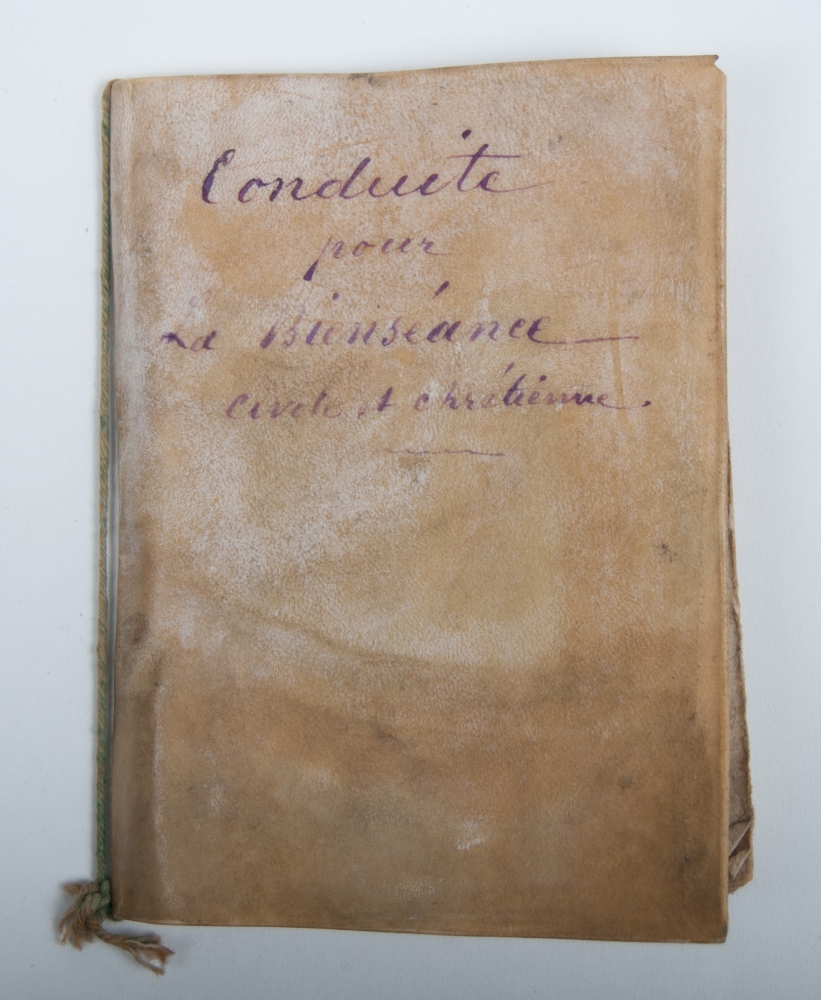 Conduite
pour
La Bienséance —
civile et chrétienne.